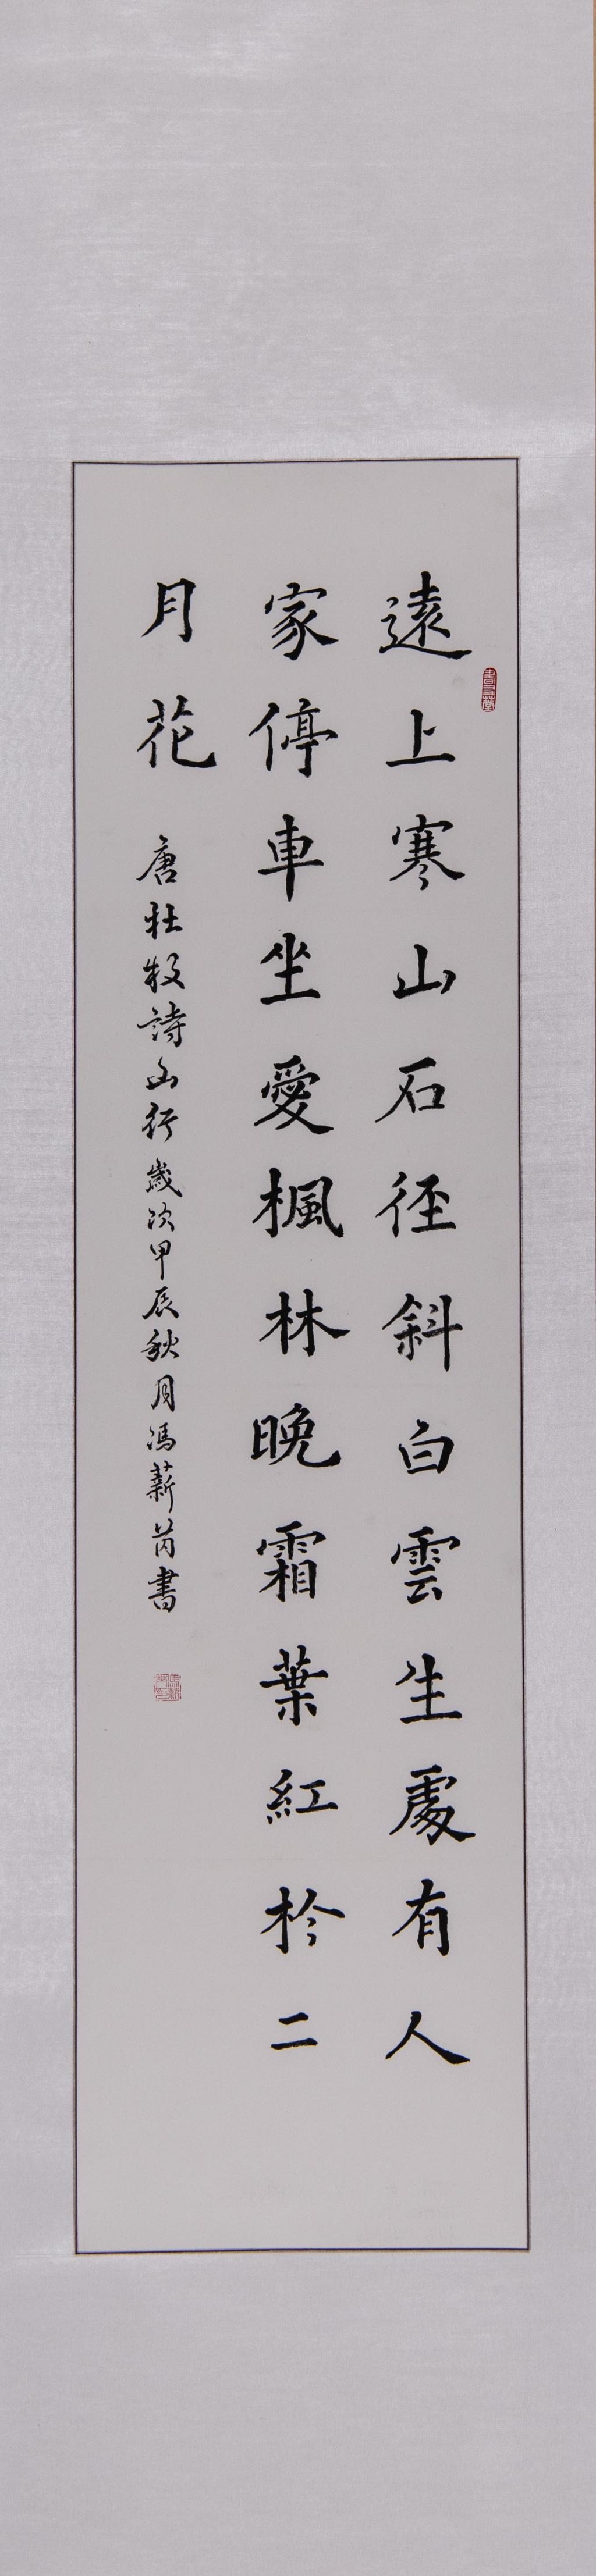 遠上寒山石徑斜白雲生處有人
家停車坐愛楓林晚霜葉紅於二
月花
唐杜牧詩山行歲次甲辰秋月馮薪芮書